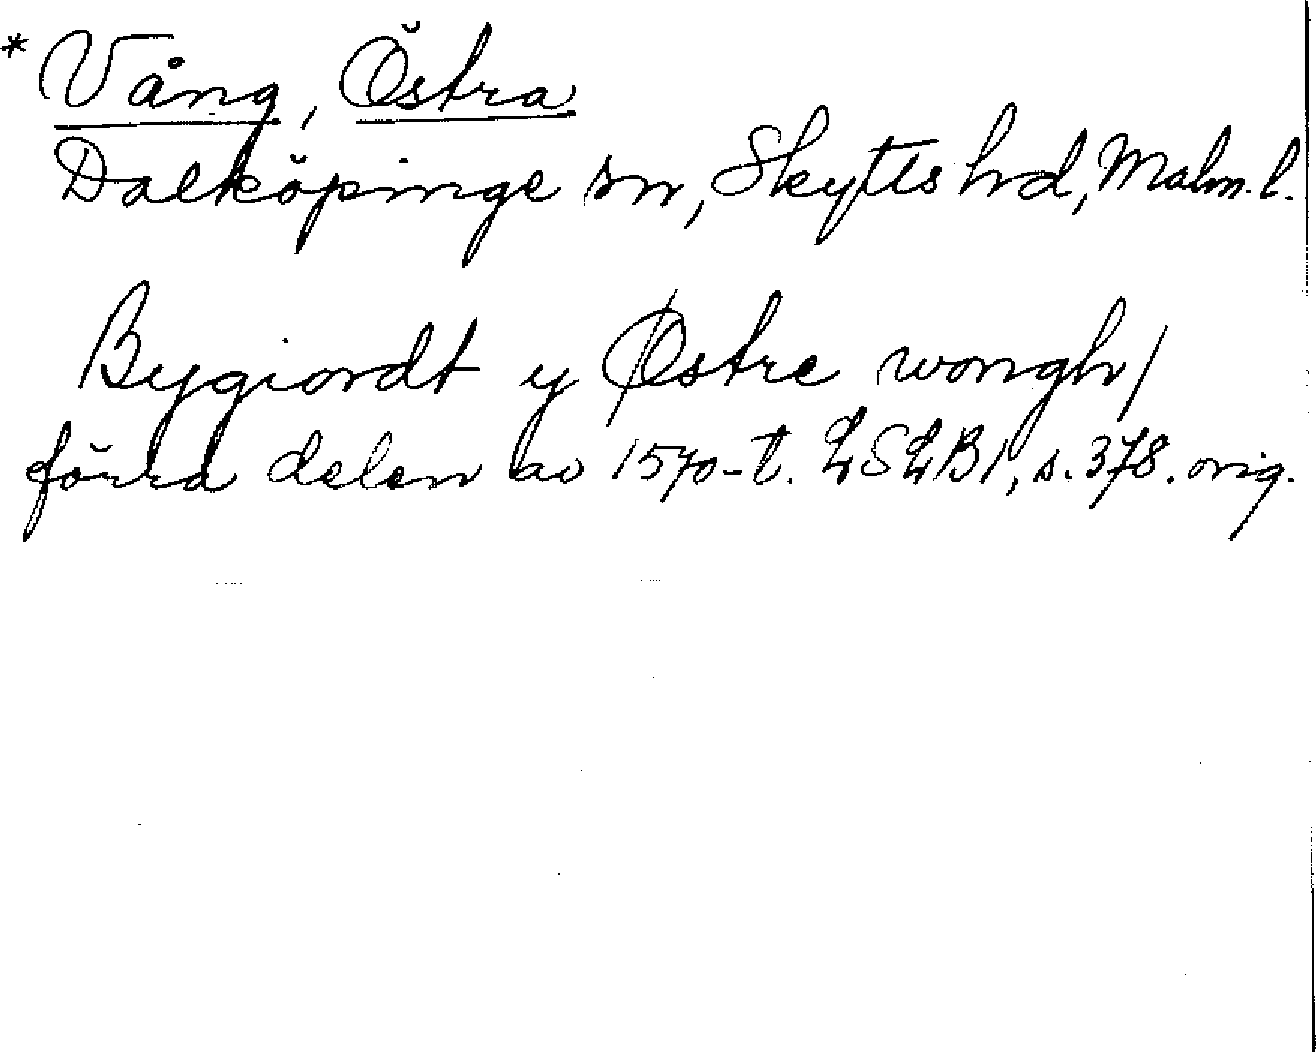 * Vång, Östra
Dalköpinge sn, Skytts hd, Malm. l.
Bygiordt y Østre wongh/
förra delen av 1570-t. LSLB1, s. 378. orig.